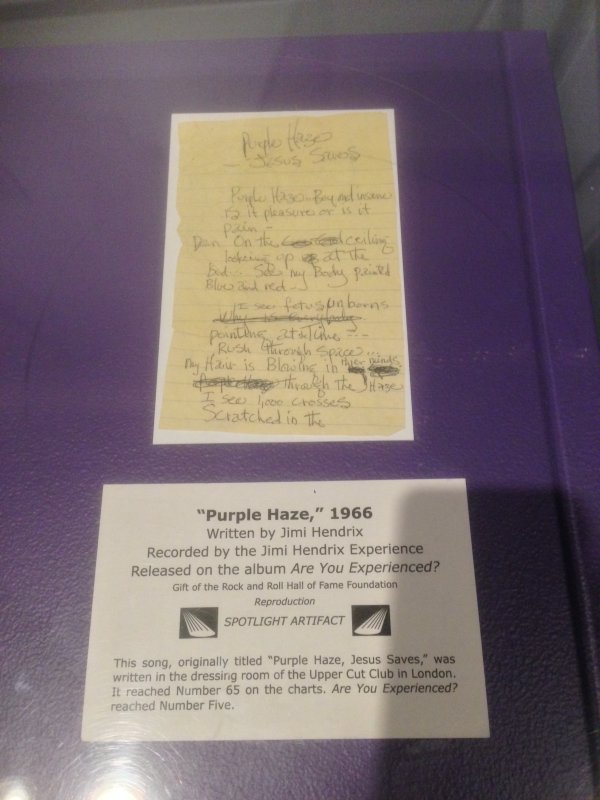 Purple Haze
- Jesus Saves
Purple Haze - Beyond insane
Is it pleasure or is it
pain -
Down On the ceiling
looking up at the
bed - See my Body painted
Blue and red -
I see fetus unborns
Why is everybody
pointing at Time ---
Rush through space...
my Hair is Blowing in thier minds
through the Haze
I see 1,000 crosses
Scratched in the
“Purple Haze,” 1966
Written by Jimi Hendrix
Recorded by the Jimi Hendrix Experience
Released on the album Are You Experienced?
Gift of the Rock and Roll Hall of Fame Foundation
Reproduction
SPOTLIGHT ARTIFACT
This song, originally titled “Purple Haze, Jesus Saves,” was
written in the dressing room of the Upper Cut Club in London.
It reached Number 65 on the charts. Are You Experienced?
reached Number Five.